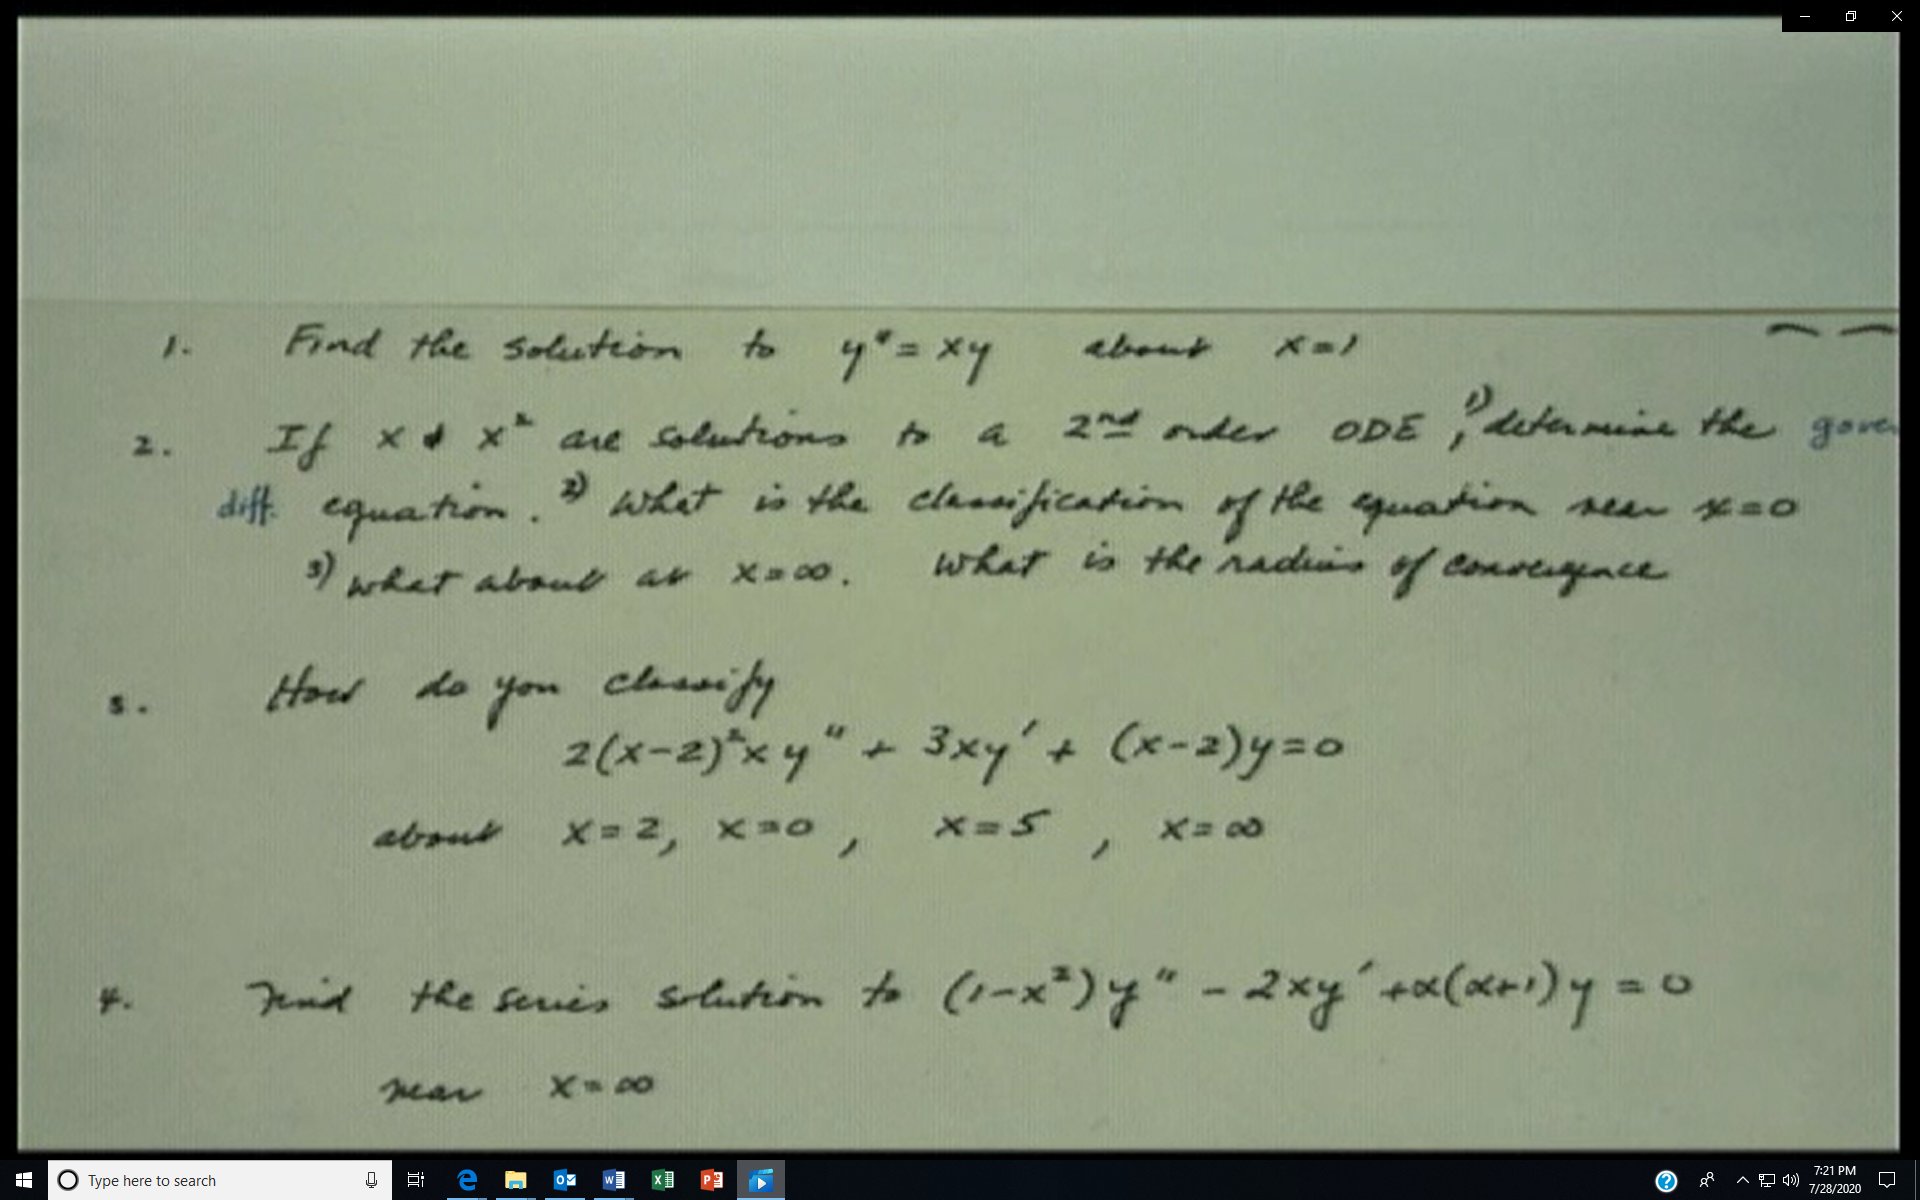 1. Find the solution to y" = xy about x=1
2. If x & x² are solutions to a 2nd order ODE, 1) determine the gover
diff. equation. 2) What is the classification of the equation near x=0
3) what about at x=∞. What is the radius of convergence
3. How do you classify
2(x-2)²xy" + 3xy' + (x-2)y=0
about x=2, x=0, x=5, x=∞
4. Find the series solution to (1-x²)y" - 2xy' + α(α+1)y = 0
near x=∞
Type here to search
7:21 PM
7/28/2020